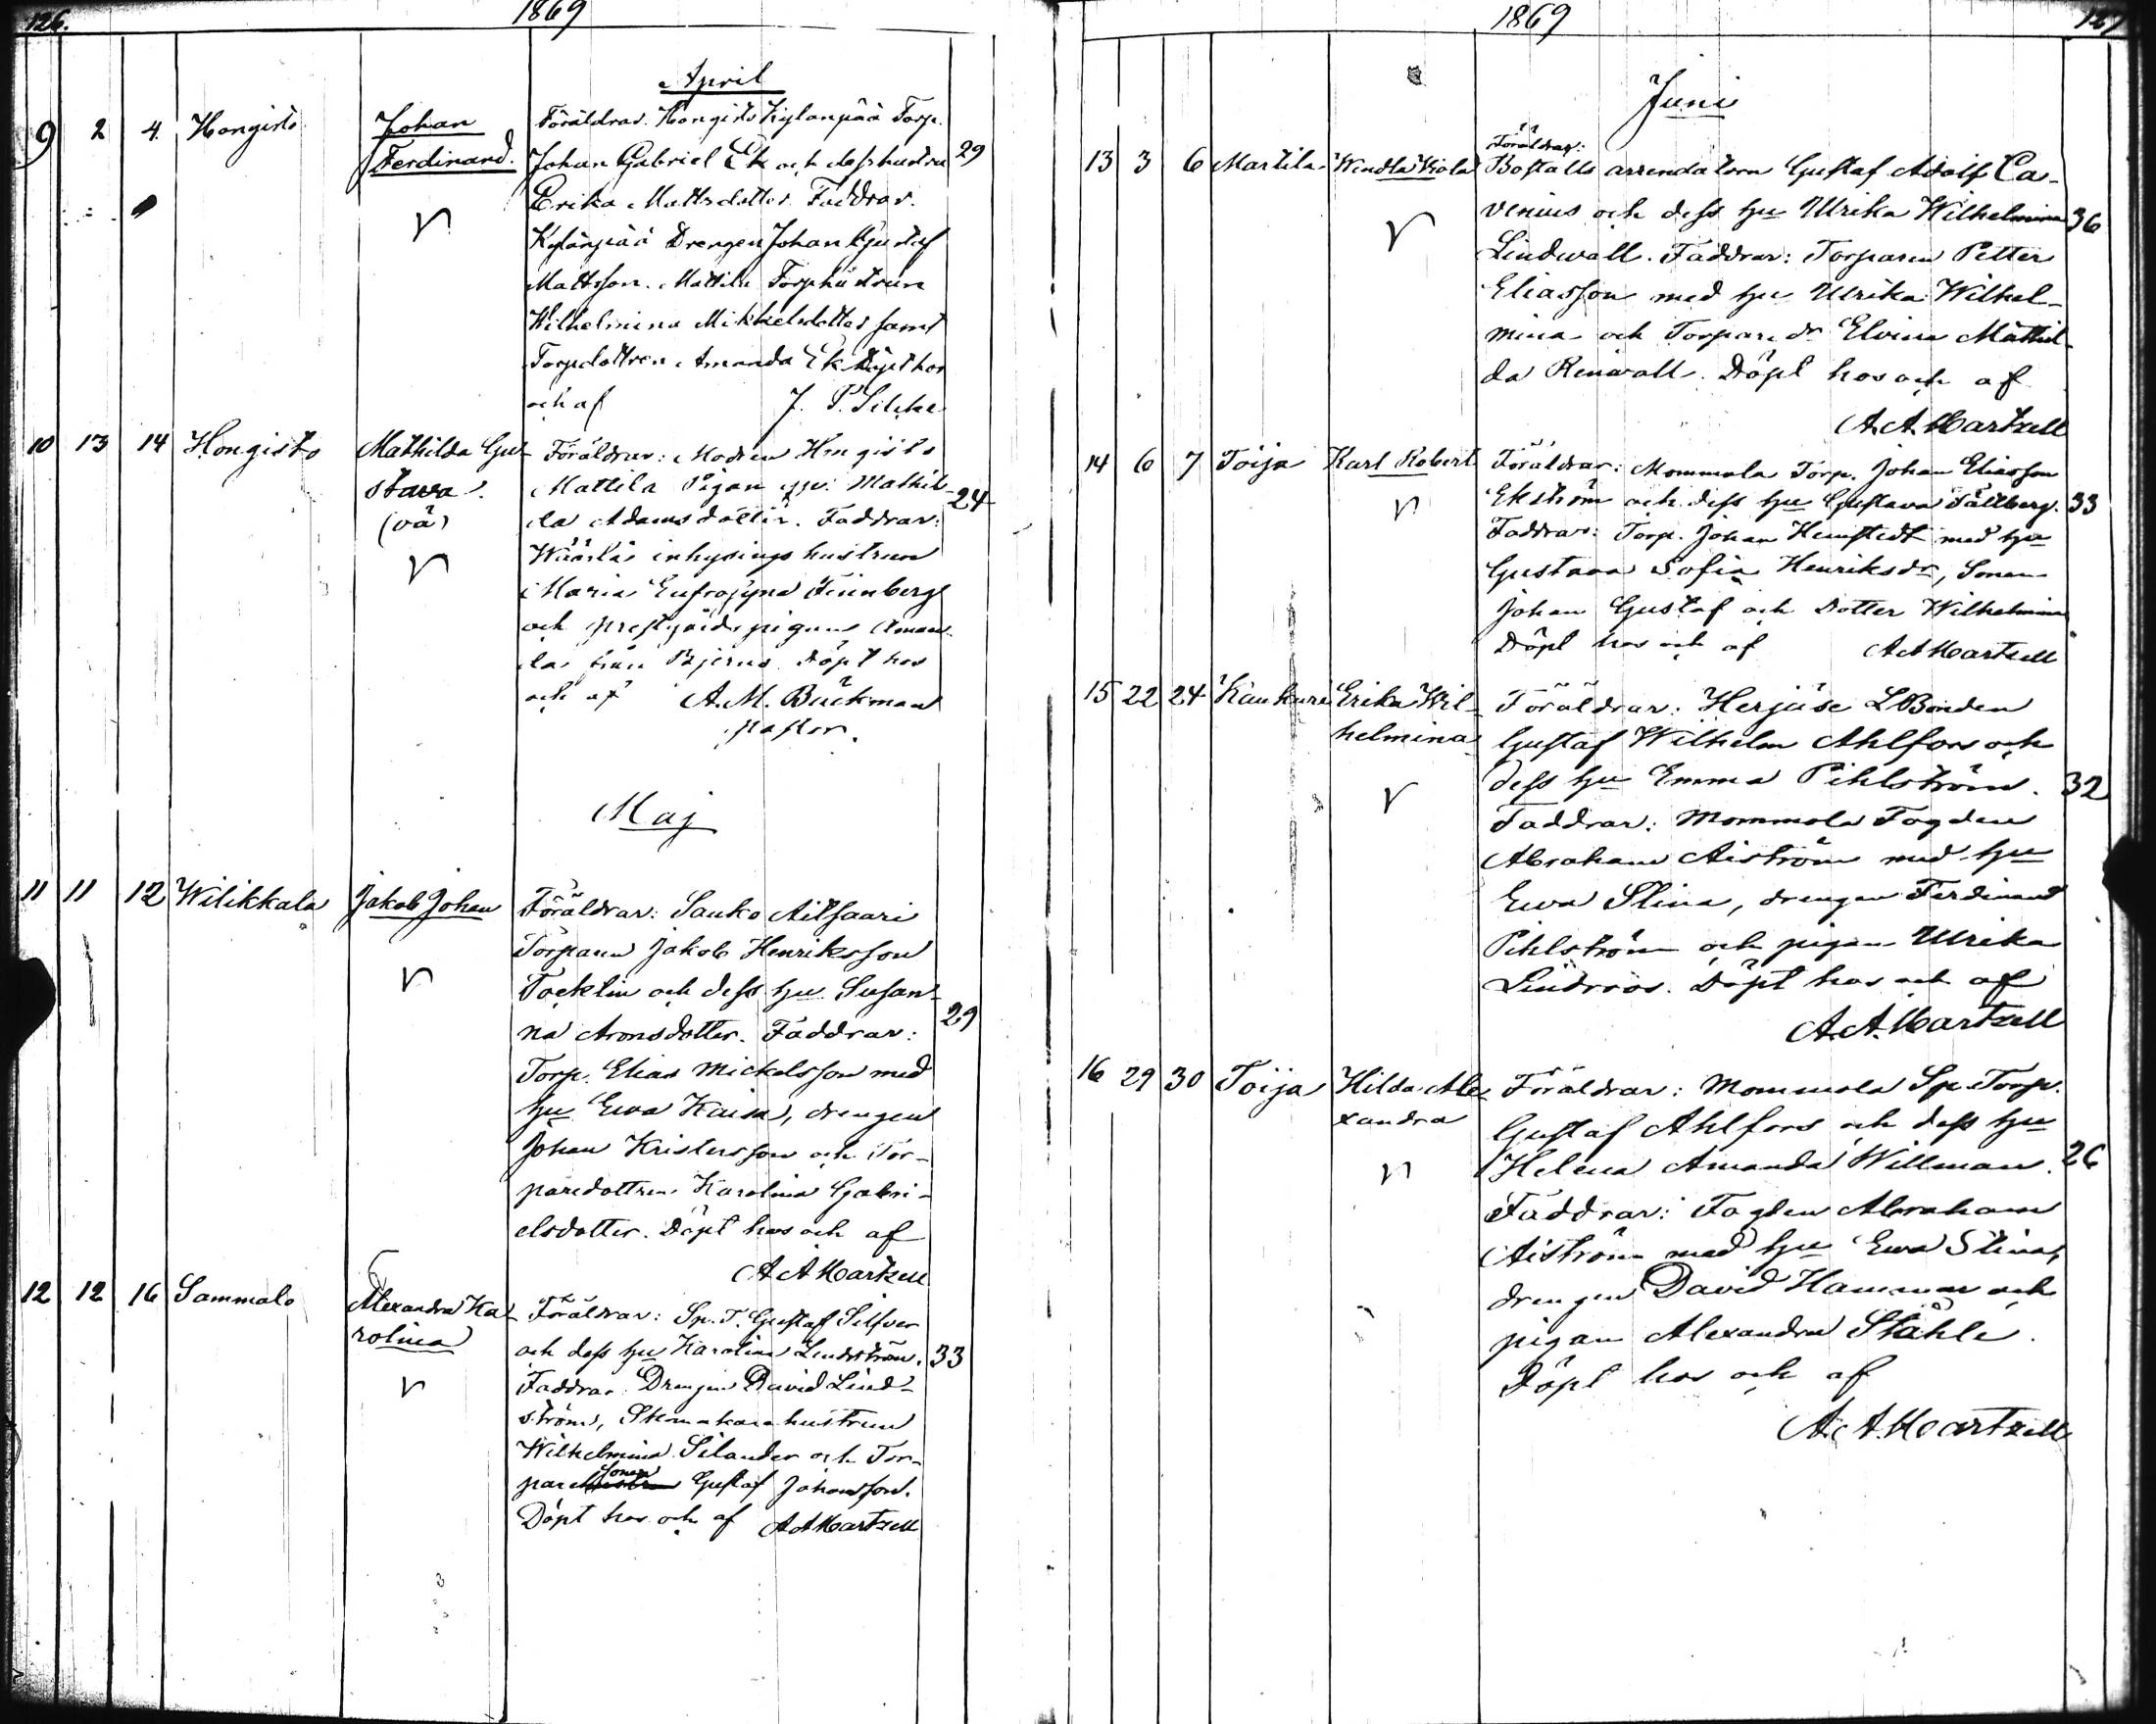 126.
1869
April
9 2 4 Hongisto Johan Föräldrar. Hongisto Kylänpää Torp.
Ferdinand. Johan Gabriel Ek och dess hustru 29
Erika Mattsdotter. Faddrar.
Kylänpää Drengen Johan Gustaf
Mattsson. Mattila Torphustrun
Wilhelmina Mikkelsdotter samt
Torpdottren Amanda Ek Döpt hos
och af J. P. Lilike
10 13 14 Hongisto Mathilda Gu- Föräldrar: Modren Hongisto
stava. Mattila Pigan Mathil- 24
(oä) da Adamsdotter. Faddrar:
inhysings hustrun
Maria Eufrosyna
och prestgårds pigan Aman-
da från Bjerno Döpt hos
och af A. M. Bückman
pastor.
Maj
11 11 12 Wilikkala Jakob Johan Föräldrar: Sauko Aitsaari
Torparen Jakob Henriksson
Tocklin och dess hu Susan-
na Aronsdotter. Faddrar: 29
Torp. Elias Mickelsson med
hu Ewa Kaisa, drengen
Johan Kristersson och Tor-
paredottren Karolina Gabri-
elsdotter. Döpt hos och af
A A Hartzell
12 12 16 Sammalo Alexandra Ka- Föräldrar: Sp. T. Gustaf Silfver
rolina och dess hu Karolina Lindström. 33
Faddrar. Drengen David Lind-
ström, Skomakare hustrun
Wilhelmina Silander och Tor-
pare sonen Gustaf Johansson.
Döpt hos och af A A Hartzell
1869
127
Juni
Föräldrar:
13 3 6 Martila Wendla Viola Boställs arrendatorn Gustaf Adolf Ca-
venius och dess hu Ulrika Wilhelmina 36
Lindwall. Faddrar: Torparen Petter
Eliasson med hu Ulrika Wilhel-
mina och Torpare dr Elvina Mathil-
da Renwall. Döpt hos och af
A. A. Hartzell
14 6 7 Toija Karl Robert Föräldrar: Mommola Torp. Johan Eliasson
Ekström och dess hu Gustava Fällberg. 33
Faddrar: Torp. Johan Hemstedt med hu
Gustava Sofia Henriksdr, Sonen
Johan Gustaf och Dotter Wilhelmina
Döpt hos och af A A Hartzell
15 22 24 Kaukuri Erika Wil- Föräldrar: Herjäse L Bonden
helmina Gustaf Wilhelm Ahlfors och
dess hu Emma Pihlström. 32
Faddrar: Mommola Fogden
Abraham Aiström med hu
Ewa Stina, drengen Ferdinand
Pihlström och pigan Ulrika
Lindroos. Döpt hos och af
A. A. Hartzell
16 29 30 Toija Hilda Ale- Föräldrar: Mommola Sp. Torp.
xandra Gustaf Ahlfors och dess hu
Helena Amanda Willman. 26
Faddrar: Fogden Abraham
Aiström med hu Ewa Stina,
drengen David Hammar och
pigan Alexandra Ståhle.
Döpt hos och af
A. A. Hartzell